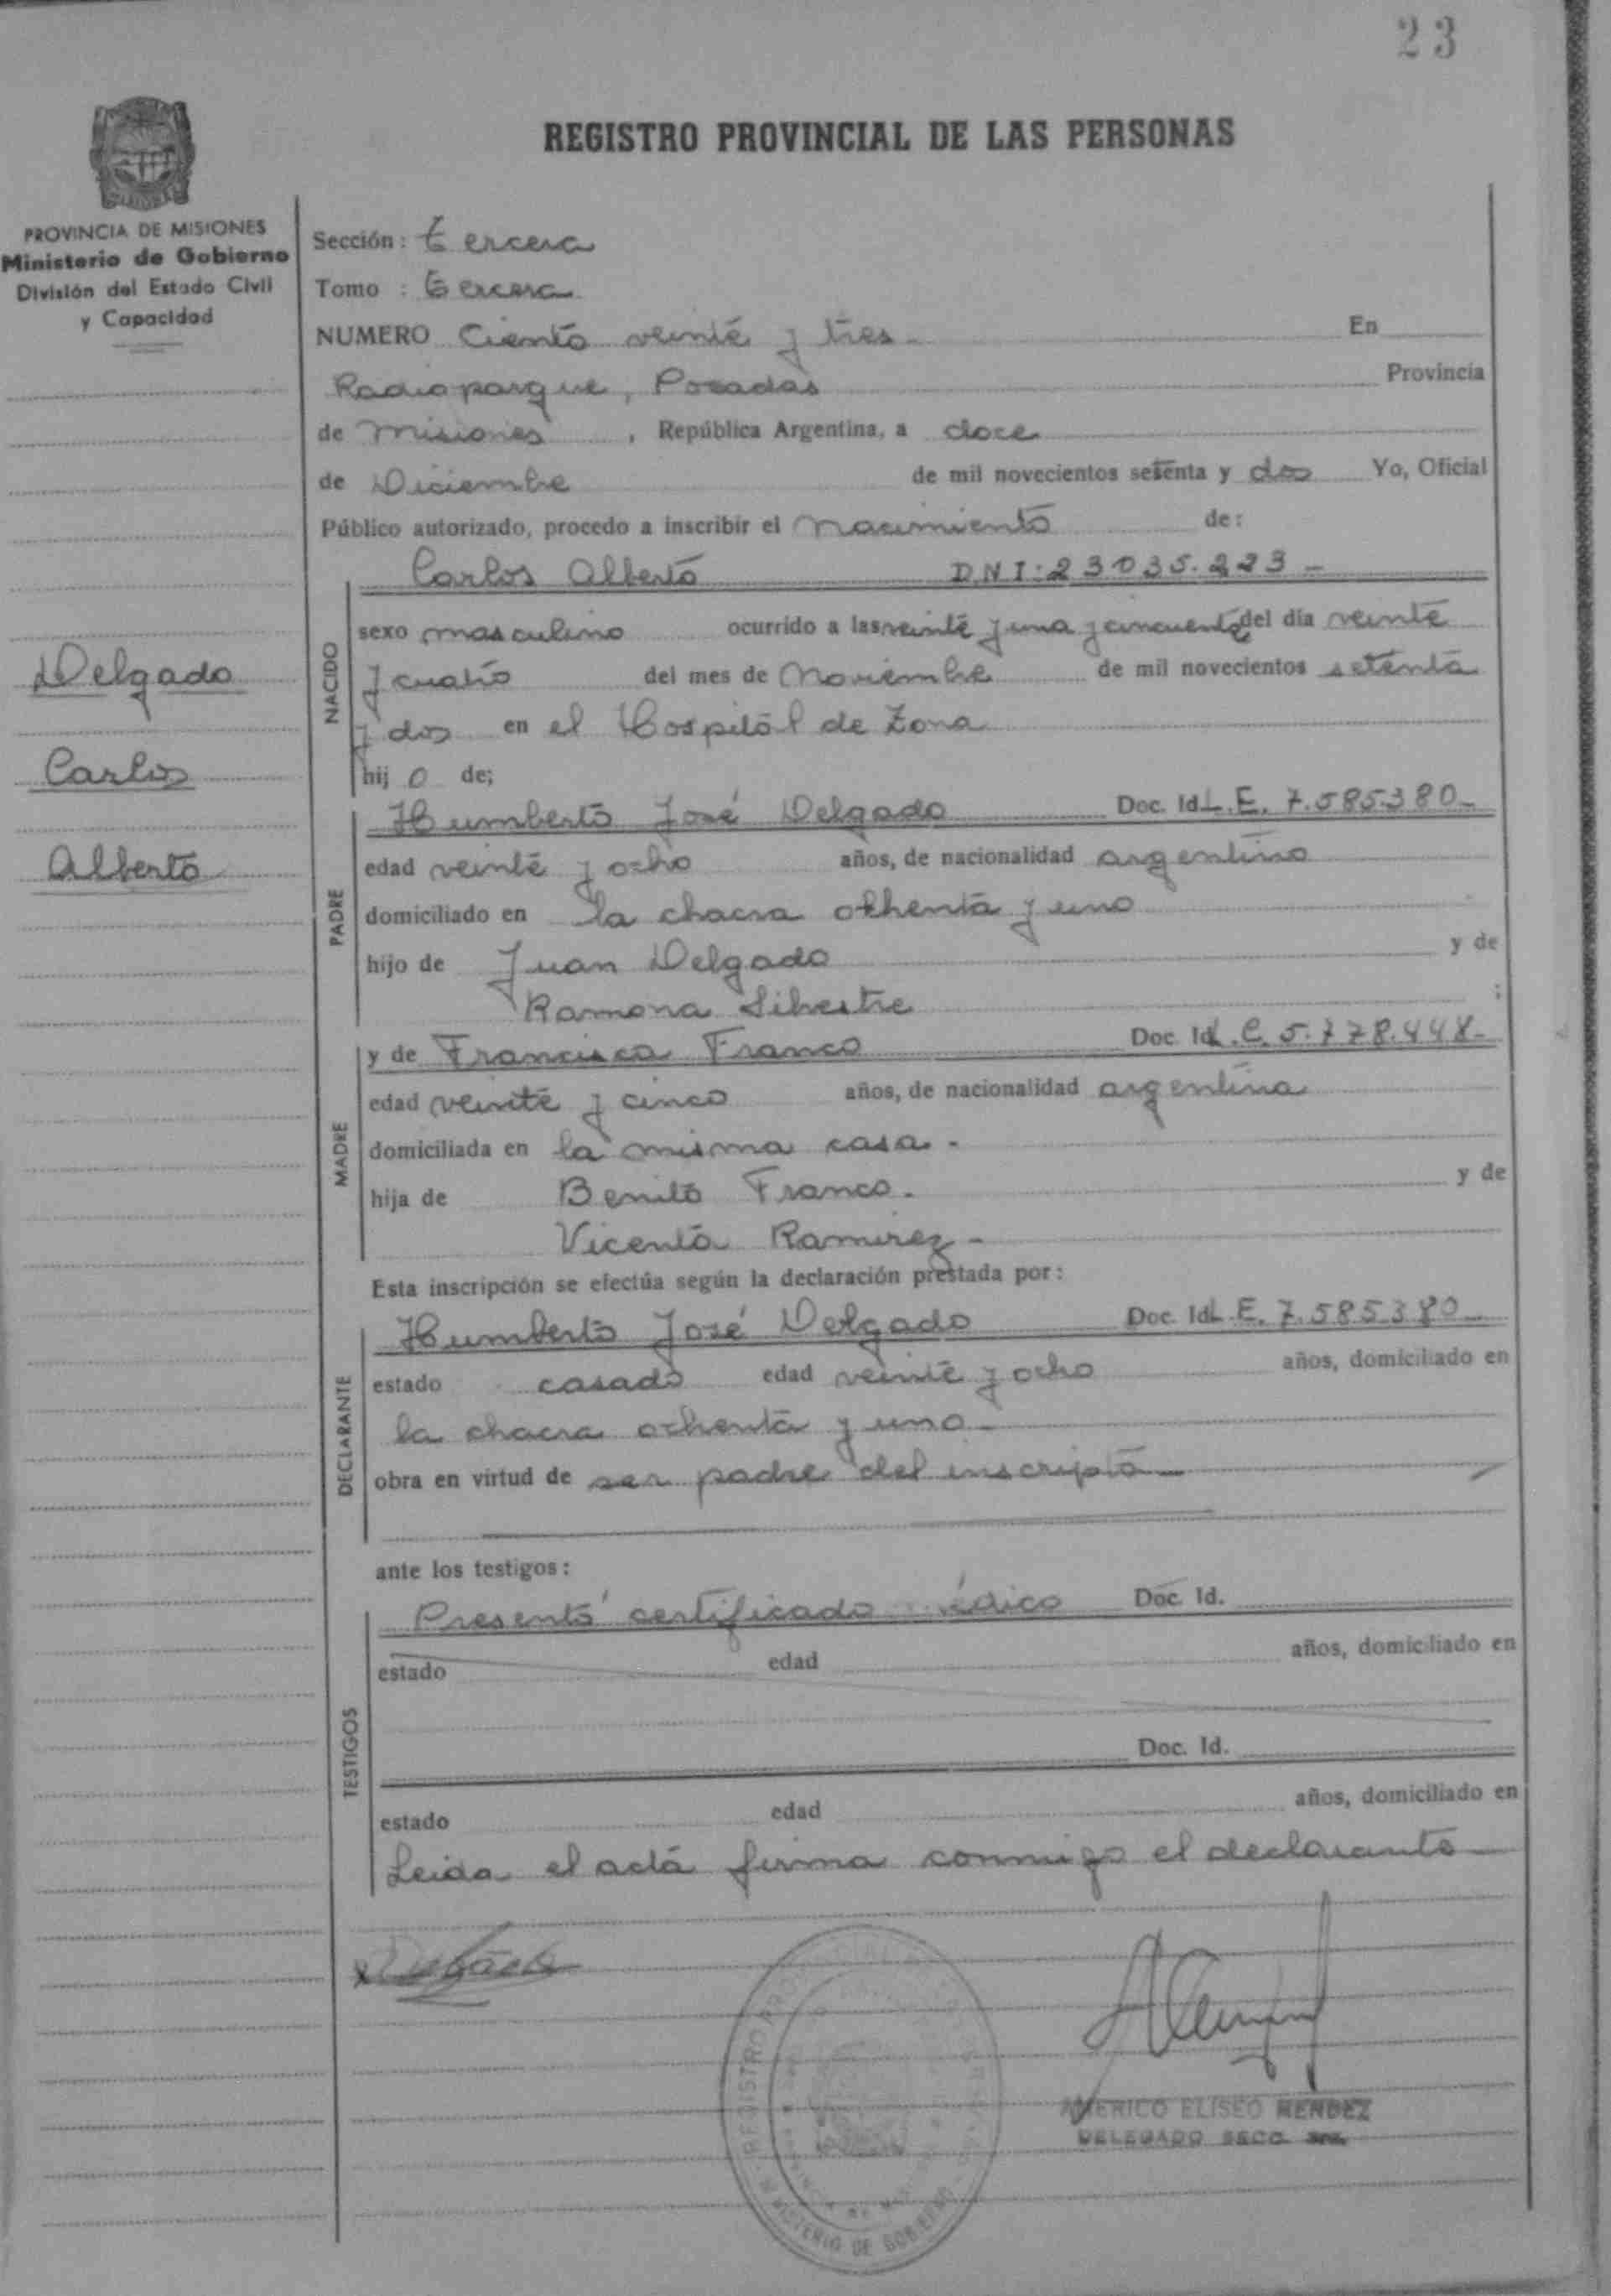 23
REGISTRO PROVINCIAL DE LAS PERSONAS
PROVINCIA DE MISIONES
Ministerio de Gobierno
División del Estado Civil
y Capacidad
Delgado
Carlos
Alberto
Sección: tercera
Tomo : tercera
NUMERO Ciento veinte y tres - En
Radioparque, Posadas Provincia
de Misiones, República Argentina, a doce
de Diciembre de mil novecientos setenta y dos Yo, Oficial
Público autorizado, procedo a inscribir el nacimiento de:
Carlos Alberto DNI: 23035.223 -
NACIDO
sexo masculino ocurrido a las veinte y una y cincuenta del día veinte
y cuatro del mes de Noviembre de mil novecientos setenta
y dos en el Hospital de Zona
hij o de;
PADRE
Humberto José Delgado Doc. Id L.E. 7.585.380-
edad veinte y ocho años, de nacionalidad argentino
domiciliado en la chacra ochenta y uno
hijo de Juan Delgado y de
Ramona Silvestre ;
MADRE
y de Francisca Franco Doc. Id L.C. 5.778.448-
edad veinte y cinco años, de nacionalidad argentina
domiciliada en la misma casa -
hija de Benito Franco. y de
Vicenta Ramirez -
Esta inscripción se efectúa según la declaración prestada por:
DECLARANTE
Humberto José Delgado Doc. Id L.E. 7.585380-
estado casado edad veinte y ocho años, domiciliado en
la chacra ochenta y uno -
obra en virtud de ser padre del inscripto -
ante los testigos:
TESTIGOS
Presentó certificado médico Doc. Id.
estado edad años, domiciliado en
Doc. Id.
estado edad años, domiciliado en
Leida el acta firma conmigo el declarante
REGISTRO PROVINCIAL
MINISTERIO DE GOBIERNO
AMERICO ELISEO MENDEZ
DELEGADO SECC. 3ra.